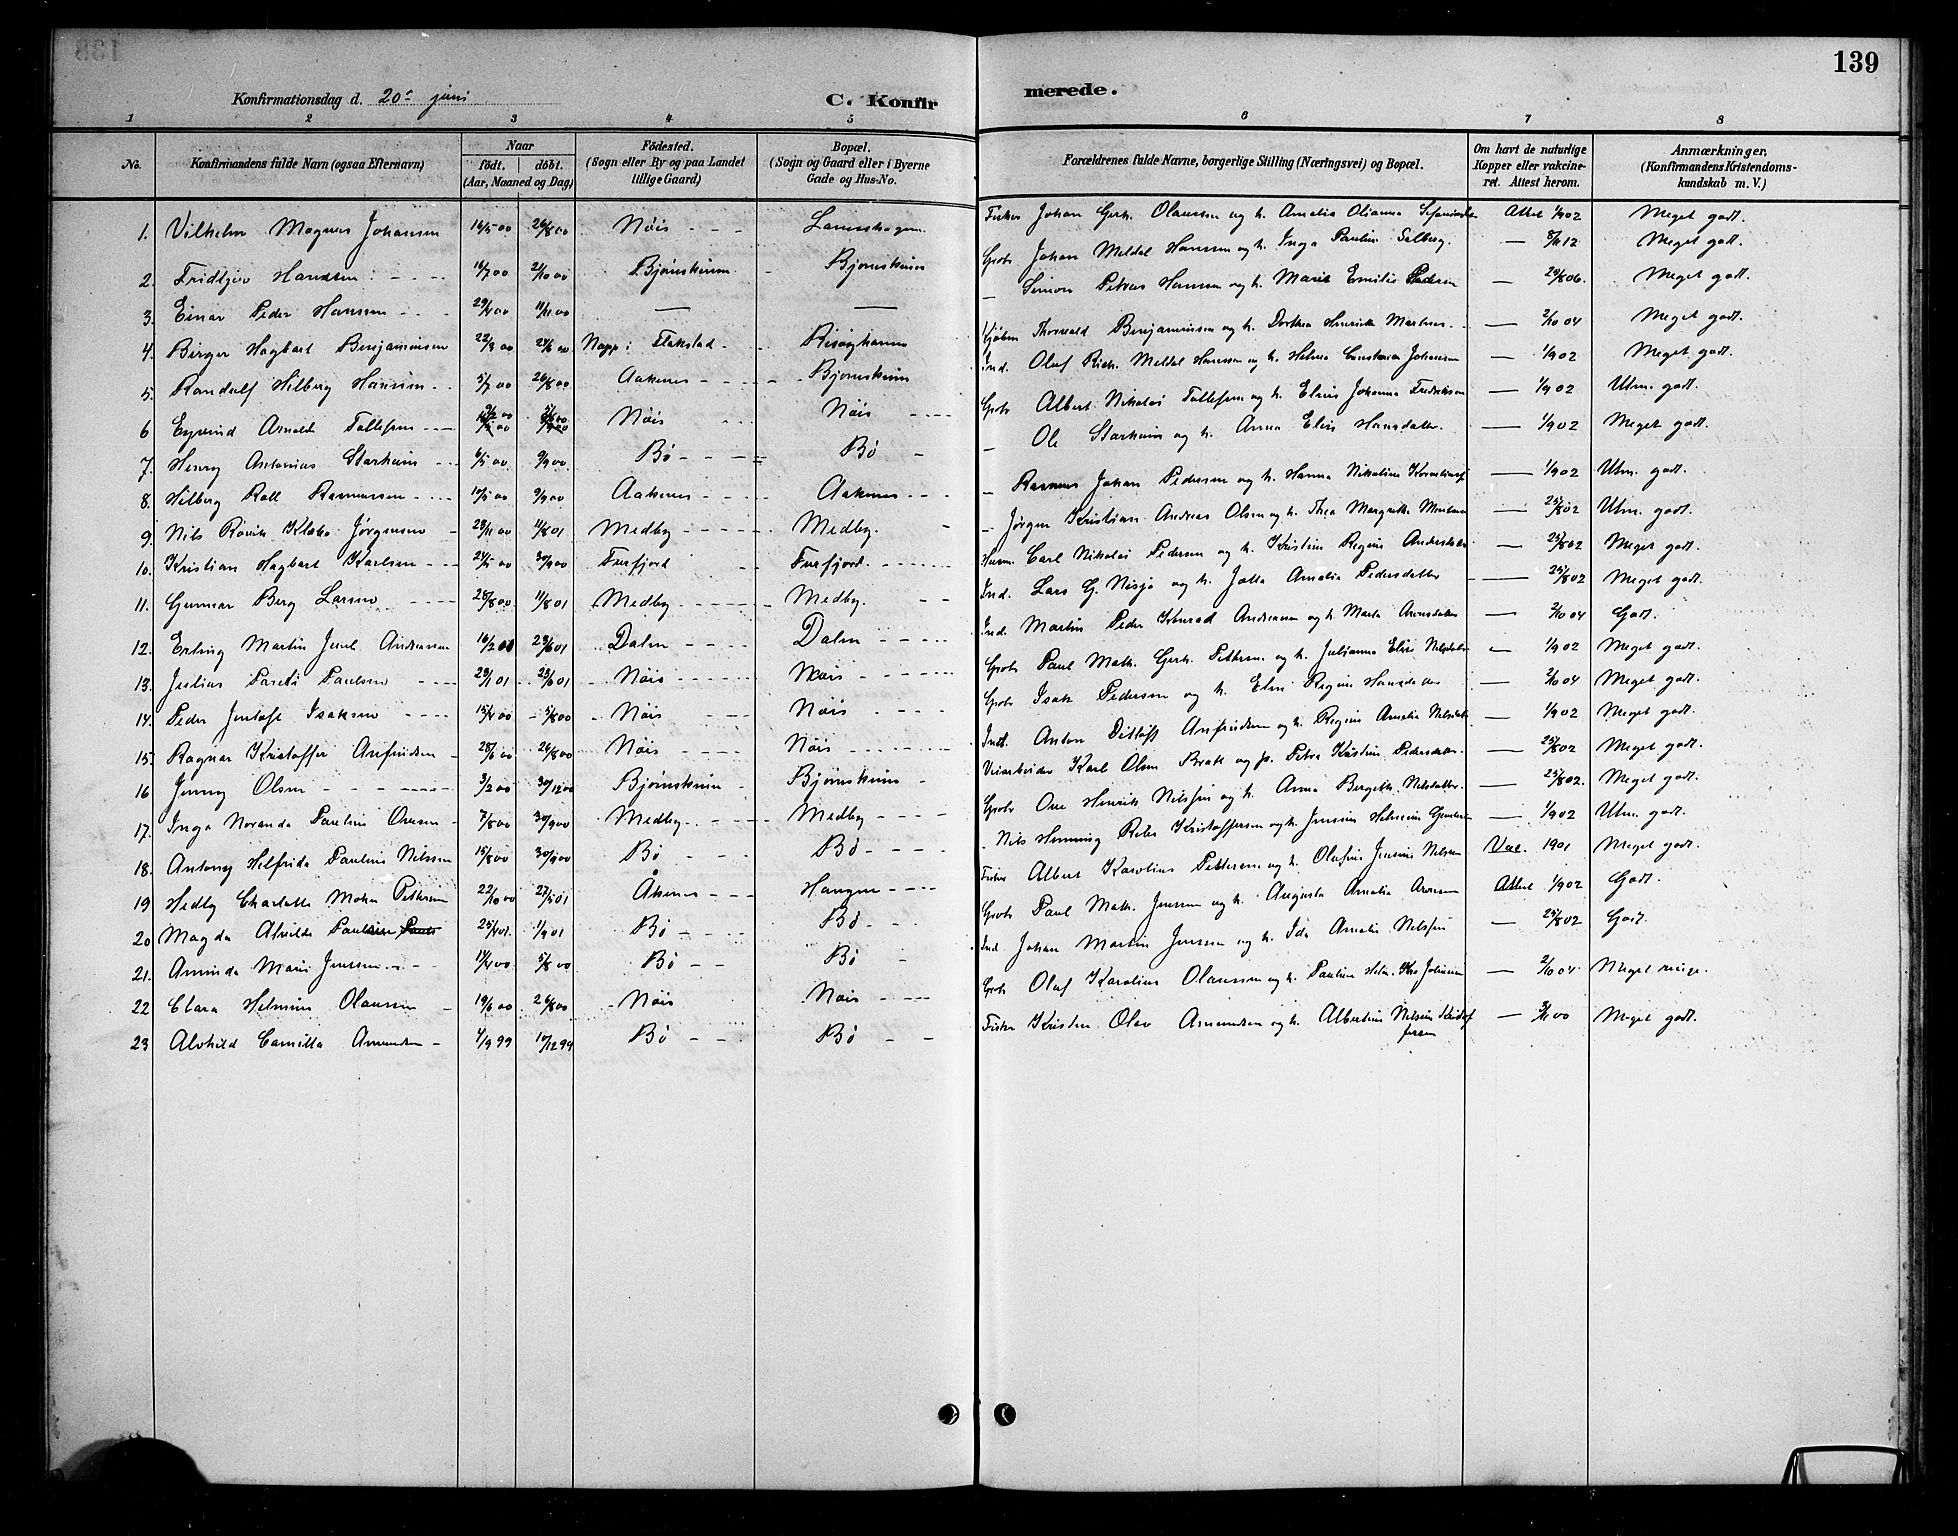 139
Konfirmationsdag d. 20de juni
C. Konfirmerede.
1 2 3 4 5 6 7 8
No.
Konfirmandens fulde Navn (ogsaa Efternavn)
Naar
født. døbt.
(Aar, Maaned og Dag)
Fødested.
(Sogn eller By og paa Landet
tillige Gaard)
Bopæl.
(Sogn og Gaard eller i Byerne
Gade og Hus-No.
Forældrenes fulde Navne, borgerlige Stilling (Næringsvei) og Bopæl.
Om havt de naturlige
Kopper eller vakcine-
ret. Attest herom.
Anmærkninger,
(Konfirmandens Kristendoms-
kundskab m. V.)
1. Vilhelm Magnus Johansen 16/5 00 26/8 00 Nøis Fisker Johan Gerh. Olaussen og h. Amalia Olianna Attest 1/9 02 Meget godt.
2. Fridtjov Hanssen 16/7 00 21/10 00 Bjørnskinn Bjørnskinn Grbr. Johan Meldal Hanssen og h. Inga Pauline Solberg. — 8/11 12 Meget godt.
3. Einar Peder Hanssen 29/4 00 11/11 00 — — — Simon Petrus Hanssen og h. Marie Emilie Pedersen — 29/8 06. Meget godt.
4. Birger Hagbart Benjaminsen 22/3 00 24/6 00 Napp i Flakstad Risøyhamn Kjøbm. Thorvald Benjaminsen og h. Dorthea Henrikke — 2/10 04 Meget godt.
5. Randulf Hilberg Hanssen 5/7 00 26/8 00 Aakenes Bjørnskinn Ind. Oluf Rich. Meldal Hanssen og h. Helma Constance Johansen — 1/9 02 Meget godt.
6 Eyvind Arnoldi Tollefsen Nøis Nøis Grbr. Albert Nikolai Tollefsen og h. Elina Johanna Fredriksen — 1/9 02 Utm. godt.
7. Henry Antonius Starheim 6/5 00 9/9 00 Bø Bø — Ole Starheim og h. Anna Elise Hansdatter — 1/9 02 Meget godt.
8. Hilberg Roll Rasmussen 10/5 00 9/9 00 Aakenes Aakenes — Rasmus Johan Pedersen og h. Hanna Nikoline — 1/9 02 Utm. godt.
9. Nils Rønvik Klæbo Jørgensen 28/11 00 11/8 01 Medby Medby. — Jørgen Kristian Andreas Olsen og h. Thea Margrethe — 25/8 02 Utm. godt.
10. Kristian Hagbart Karlsen 24/5 00 30/9 00 Furfjord Furfjord. Husm. Carl Nikolai Pedersen og h. Kristine Regine — 25/8 02 Meget godt.
11. Gunnar Berg Larsen 28/8 00. 11/8 01 Medby Medby. Ind. Lars G. Nesjø og h. Jetta Amalia Pedersdatter — 25/8 02 Meget godt.
12. Erling Martin Juul Andreassen 16/2 01 29/6 01 Dalen Dalen Ind. Martin Peder Konrad Andreassen og h. Marta — 2/10 04 Godt.
13. Justius Pareli Paulsen 29/1 01 29/6 01 Nøis Nøis Grbr. Paul Math. Gerh. Pettersen og h. Julianna Elise Nilsdatter — 1/9 02 Meget godt.
14. Peder Jentoft Isaksen 15/4 00 5/8 00 Nøis Nøis Grbr. Isak Pedersen og h. Elen Regine Hansdatter — 2/10 04 Meget godt.
15. Ragnar Kristoffer Anfindsen 26/8 00 Nøis Nøis Ind. Anton Ditlefs Anfindsen og h. Regine Amalia — 1/9 02 Meget godt.
16 Jenny Olsen 3/2 00 30/12 00 Bjørnskinn Bjørnskinn Veiarbeider Karl Olsen Brath og p. Petra Kristine Pedersdatter. — 25/8 02 Meget godt.
17. Inga Noranda Pauline Ovesen 7/8 00 30/9 00 Medby Medby Grbr. Ove Henrik Nilssen og h. Anna Bergethe Nilsdatter. — 25/8 02. Meget godt.
18. Antony Helfrida Pauline Nilssen 15/8 00 30/9 00 Bø Bø — Nils Henning Kristoffersen og h. Jensine — 1/9 02 Utm. godt.
19 Hedby Charlotte Mohn Pettersen 22/10 00 27/5 01 Åkenes Haugen Fisker Albert Karolius Pettersen og h. Olufine Jensine Nilssen Vac. 1901 Meget godt.
20 Magda Alvilde Paulsen 25/4 01. 1/9 01 Bø Bø Grbr. Paul Math. Jenssen og h. Augusta Amalia Attest 1/9 02 Godt.
21. Aminda Marie Jenssen 11/4 00 5/8 00 Bø Bø Ind Johan Martin Jenssen og h. Ida Amalie Nilssen — 25/8 02 Godt.
22 Clara Helmine Olaussen 19/6 00 26/8 00 Nøis Nøis Grbr. Oluf Karolius Olaussen og h. Pauline — 2/10 04. Meget ringe.
23 Alvhild Camilla Amundsen 4/9 99 10/12 99 Bø Bø Fisker Kristen Olav Amundsen og h. Albertine Nilsine — 3/11 00 Meget godt.